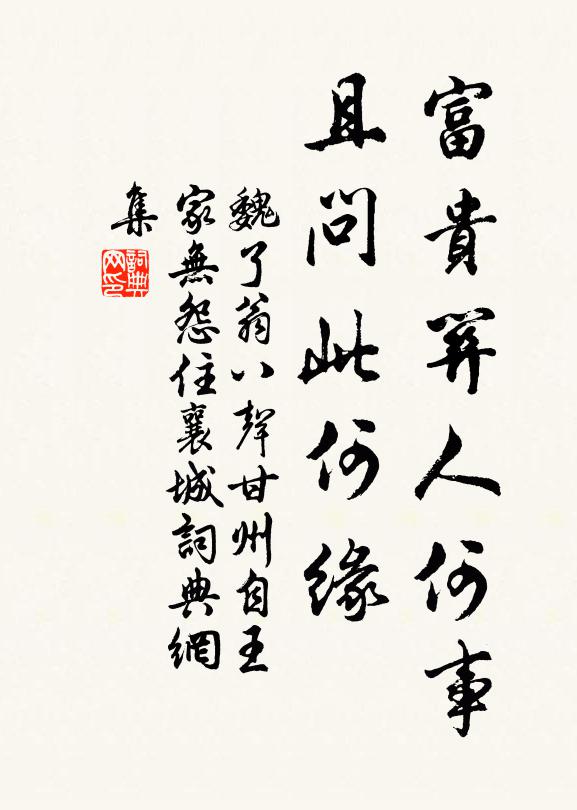 富貴關人何事
且問此何緣
魏了翁八聲甘州自王
家無怨住襄城詞典網
集
詞典
网印